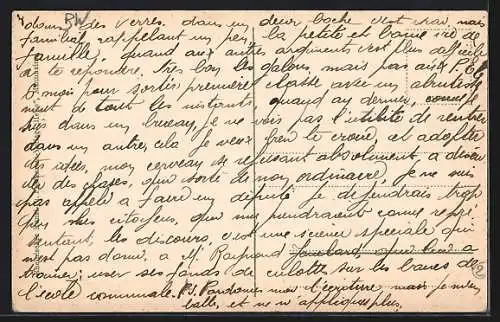 donner des verres. dans un decor boche c'est vrai, mais
familial, rappellant un peu la petite et bonne vie de
famille, quand aux autres arguments c'est plus difficile
de te repondre. Très bon les galons mais pas aux P.
6 mois pour sortir première classe avec un abrutisse
ment de tout les instants quand au dernier, comme je
suis dans un bureau, je ne vois pas l'utilité de rentrer
dans un autre, cela je veux bien te croire, et adopter
tes idées, mon cerveau se refusant absolument, a discu
ter des choses, qui sorte de mon ordinaire, je ne suis
pas appelé a faire un député je defendrais trop
peu mes citoyens, qui me prendraient comme repré
sentant, les discours c'est une science speciale qui
n'est pas donné a Mr Raymond
trainer; user ses fonds de culotte sur les bancs de
l'école communale. P.S. Pardonnes moi l'écriture mais je m'em
balle, et ne m'applique plus.